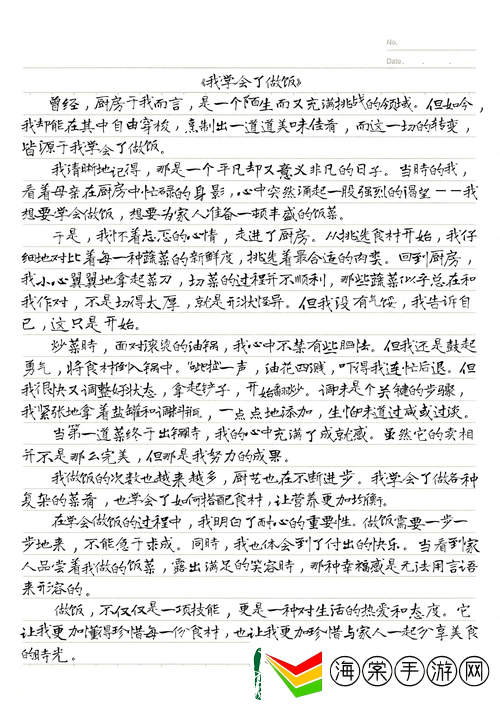 No.
Date. . .
《我学会了做饭》
曾经，厨房于我而言，是一个陌生而又充满挑战的领域。但如今，
我却能在其中自由穿梭，烹制出一道道美味佳肴，而这一切的转变，
皆源于我学会了做饭。
我清晰地记得，那是一个平凡却又意义非凡的日子。当时的我，
看着母亲在厨房中忙碌的身影，心中突然涌起一股强烈的渴望——我
想要学会做饭，想要为家人准备一顿丰盛的饭菜。
于是，我怀着忐忑的心情，走进了厨房。从挑选食材开始，我仔
细地对比着每一种蔬菜的新鲜度，挑选着最合适的肉类。回到厨房，
我小心翼翼地拿起菜刀，切菜的过程并不顺利，那些蔬菜似乎总在和
我作对，不是切得太厚，就是形状怪异。但我没有气馁，我告诉自
己，这只是开始。
炒菜时，面对滚烫的油锅，我心中不禁有些胆怯。但我还是鼓起
勇气，将食材倒入锅中。“呲啦”一声，油花四溅，吓得我连忙后退。但
我很快又调整好状态，拿起铲子，开始翻炒。调味是个关键的步骤，
我紧张地拿着盐罐和调料瓶，一点点地添加，生怕味道过咸或过淡。
当第一道菜终于出锅时，我的心中充满了成就感。虽然它的卖相
并不是那么完美，但那是我努力的成果。
我做饭的次数也越来越多，厨艺也在不断进步。我学会了做各种
复杂的菜肴，也学会了如何搭配食材，让营养更加均衡。
在学会做饭的过程中，我明白了耐心的重要性。做饭需要一步一
步地来，不能急于求成。同时，我也体会到了付出的快乐。当看到家
人品尝着我做的饭菜，露出满足的笑容时，那种幸福感是无法用言语
来形容的。
做饭，不仅仅是一项技能，更是一种对生活的热爱和态度。它
让我更加懂得珍惜每一份食材，也让我更加珍惜与家人一起分享美食
的时光。
海棠手游网